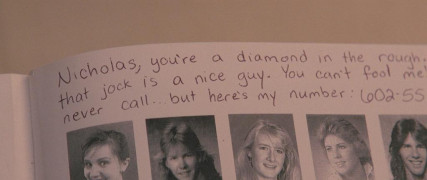 Nicholas, you're a diamond in the rough.
that jock is a nice guy. You can't fool me!
never call...but here's my number: 602-55